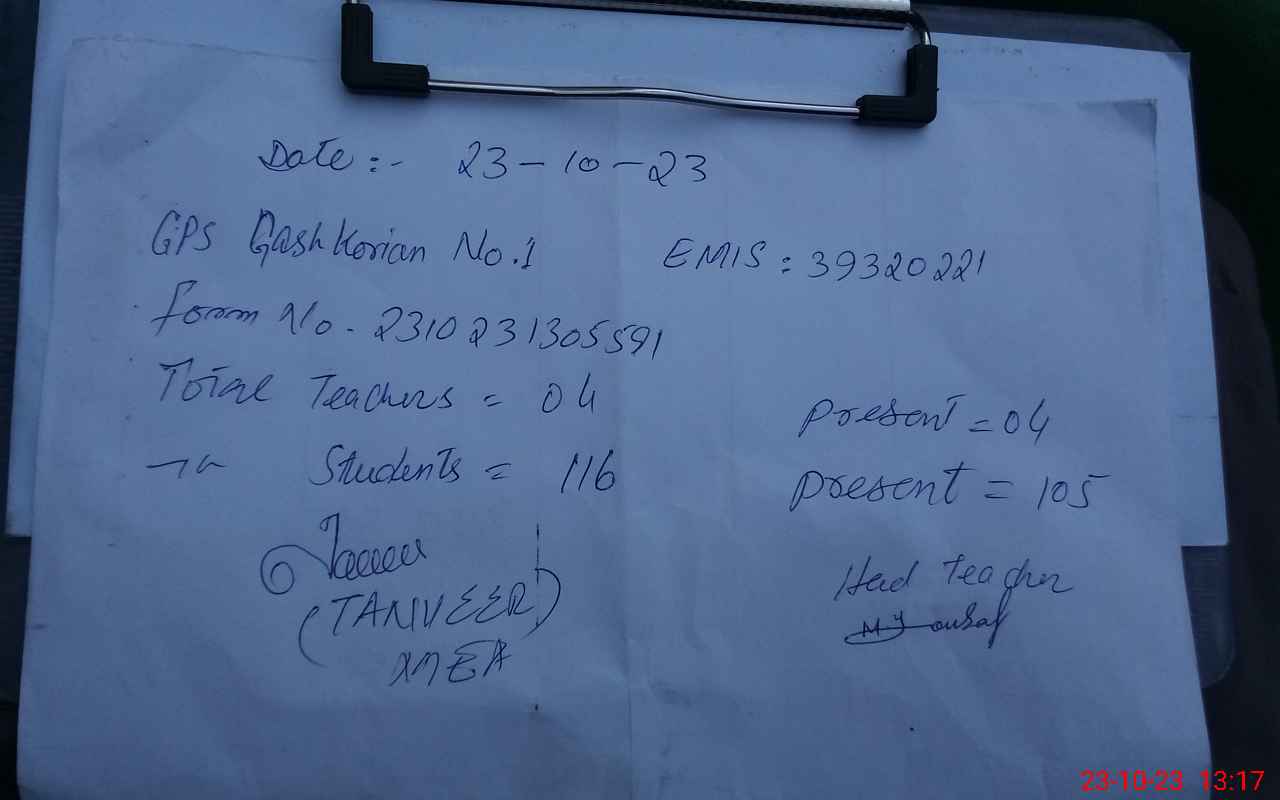 Date :- 23-10-23
GPS Gashkorian No.1 EMIS : 39320221
Form No. 2310231305591
Total Teachers = 04 Present = 04
Students = 116 Present = 105
(TANVEER) Head Teacher
MEA M Yousaf
23-10-23 13:17